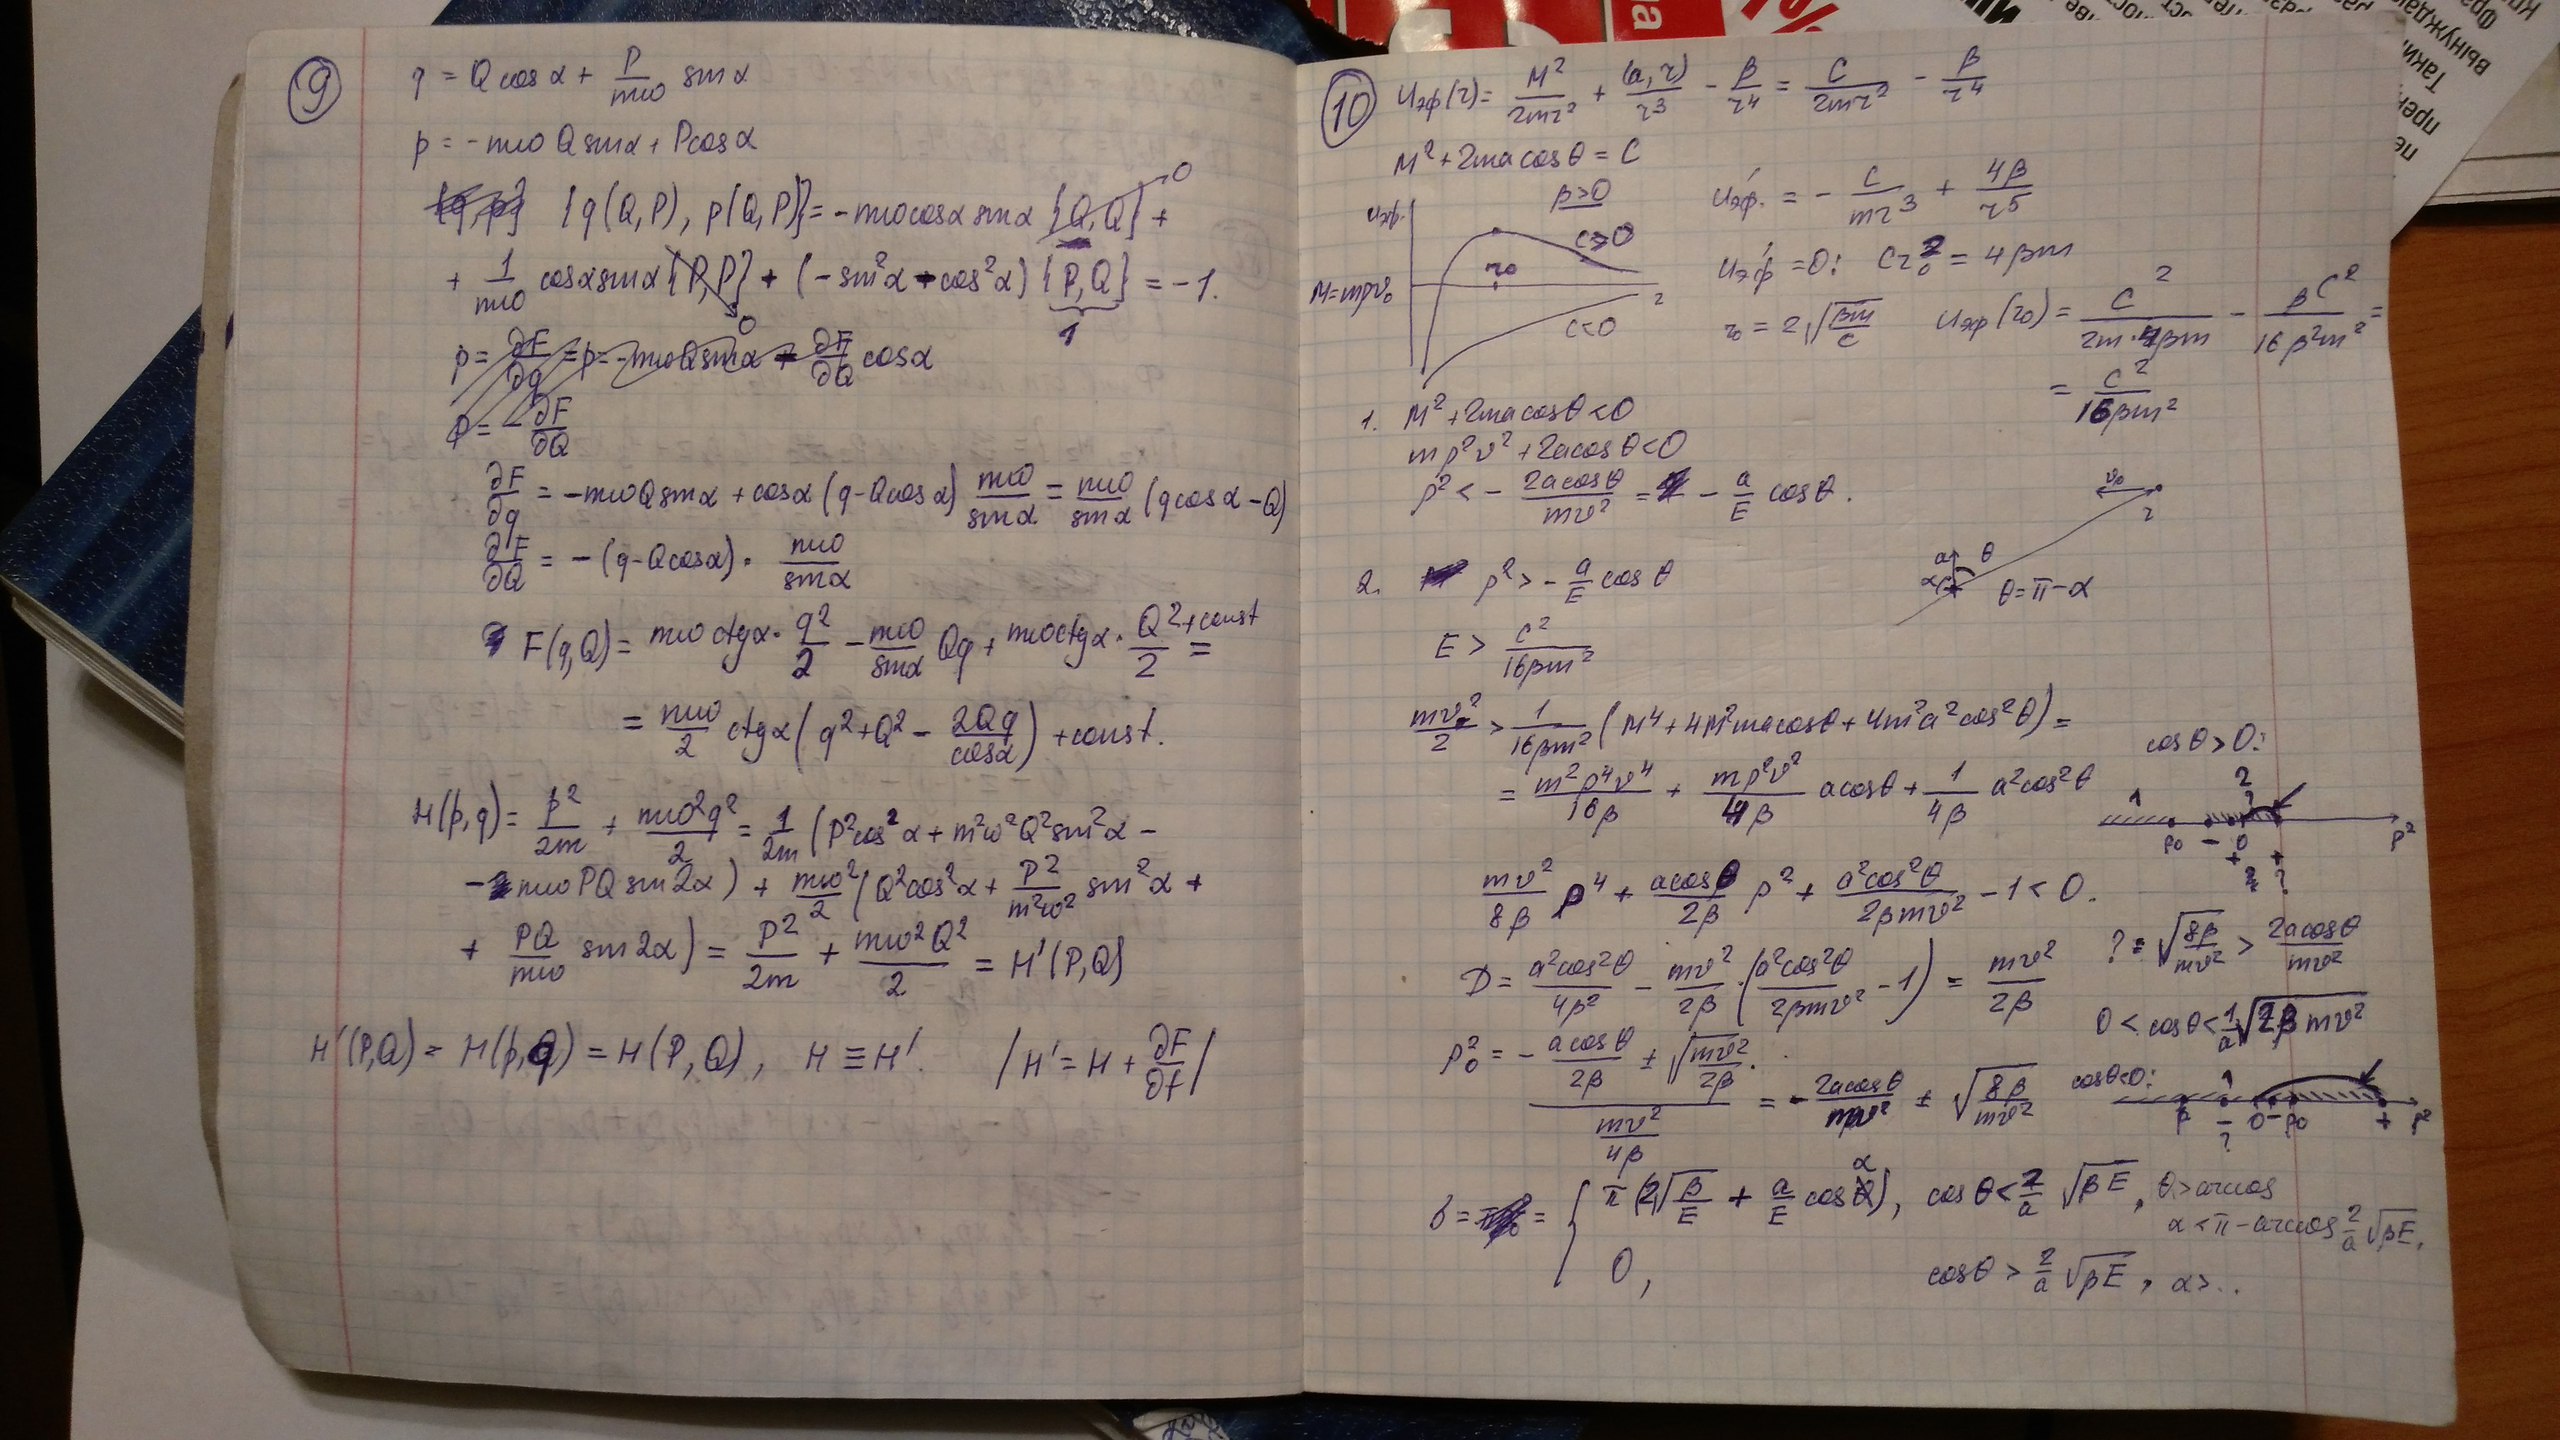 9
q = Q cos α + P/mω sin α
p = -mω Q sin α + P cos α
{q(Q,P), p(Q,P)} = -mω cos α sin α {Q,Q} → 0 +
+ 1/mω cos α sin α {P,P} → 0 + (-sin²α - cos²α) {P,Q} = -1.
1
p = ∂F/∂q = p = -mωQ sin α - ∂F/∂Q cos α
P = -∂F/∂Q
∂F/∂q = -mωQ sin α + cos α (q - Q cos α) mω/sin α = mω/sin α (q cos α - Q)
∂F/∂Q = -(q - Q cos α) · mω/sin α
F(q,Q) = mω ctg α · q²/2 - mω/sin α Qq + mω ctg α · Q²/2 + const =
= mω/2 ctg α (q² + Q² - 2Qq/cos α) + const.
H(p,q) = p²/2m + mω²q²/2 = 1/2m (P² cos²α + m²ω²Q² sin²α -
- mω PQ sin 2α) + mω²/2 (Q² cos²α + P²/m²ω² sin²α +
+ PQ/mω sin 2α) = P²/2m + mω²Q²/2 = H'(P,Q)
H'(P,Q) = H(p,q) = H(P,Q), H ≡ H'. / H' = H + ∂F/∂t /
10
Uэф(r) = M²/2mr² + (a,r)/r³ - β/r⁴ = C/2mr² - β/r⁴
M² + 2ma cos θ = C
β>0
Uэф.
C>0
r₀
r
M = mρv₀
C<0
U'эф. = - C/mr³ + 4β/r⁵
U'эф = 0: Cr₀² = 4βm
r₀ = 2√(βm/C) Uэф(r₀) = C²/2m·4βm - βC²/16β²m² =
= C²/16βm²
1. M² + 2ma cos θ < 0
mρ²v² + 2a cos θ < 0
ρ² < - 2a cos θ/mv² = - a/E cos θ.
v₀
r
a
θ
α
θ = π - α
2. ρ² > - a/E cos θ
E > C²/16βm²
mv²/2 > 1/16βm² (M⁴ + 4M²ma cos θ + 4m²a² cos²θ) =
= m²ρ⁴v⁴/16β + mρ²v²/4β a cos θ + 1/4β a² cos²θ
cos θ > 0:
1 2 ?
ρ₀ - 0 ρ²
+ + ?
mv²/8β ρ⁴ + a cos θ/2β ρ² + a² cos²θ/2βmv² - 1 < 0.
? = √(8β/mv²) > 2a cos θ/mv²
D = a² cos²θ/4β² - mv²/2β · (a² cos²θ/2βmv² - 1) = mv²/2β
0 < cos θ < 1/a √(2βmv²)
ρ₀² = (- a cos θ/2β ± √(mv²/2β)) / (mv²/4β) = - 2a cos θ/mv² ± √(8β/mv²)
cos θ<0:
1
- 0 - ρ₀ + ρ²
?
σ = = { π (2√(β/E) + a/E cos α), cos θ < 2/a √(βE), θ > arccos
α < π - arccos 2/a √(βE),
0, cos θ > 2/a √(βE), α > ...